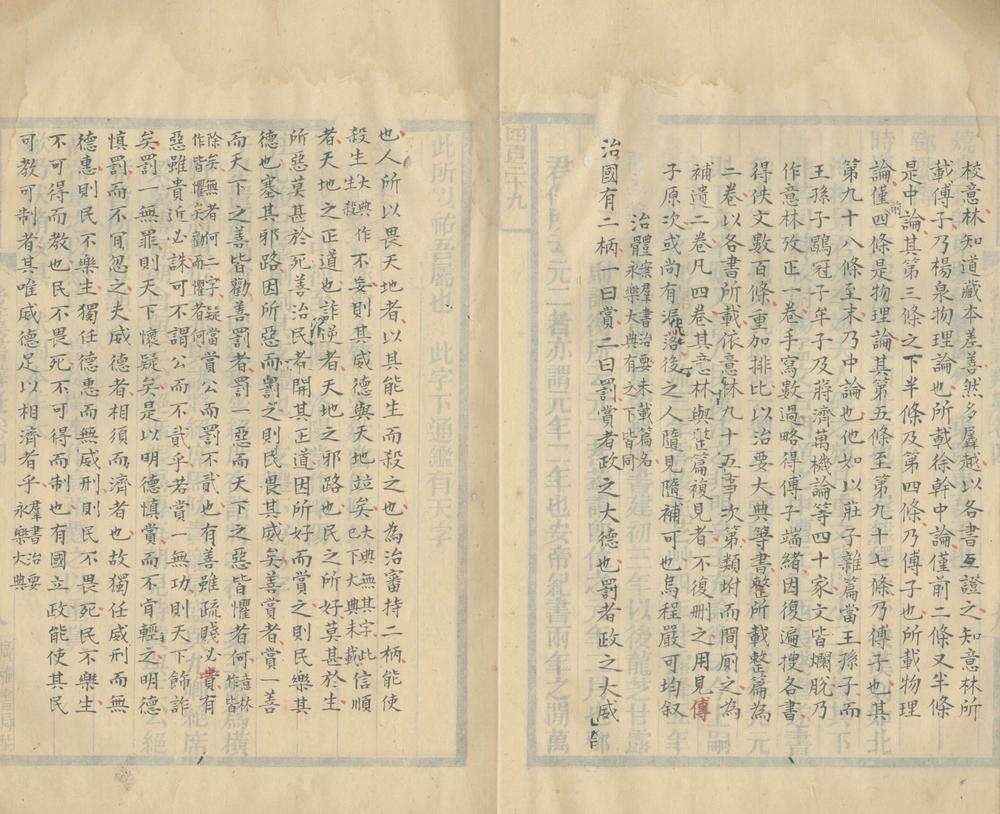 校意林知道藏本差善然多羼越以各書互證之知意林所
載傅子乃楊泉物理論也所載徐幹中論僅前二條又半條
是中論其第三條之下半條及第四條乃傅子也所載物理
論僅前四條是物理論其第五條至第九十七條乃傅子也其
第九十八條至末乃中論也他如以莊子雜篇當王孫子而
王孫子鶡冠子牟子及蔣濟萬機論等四十家文皆爛脫乃
作意林攷正一卷手寫數過略得傅子端緒因復遍搜各書
得佚文數百條重加排比以治要大典等書整所載整篇為
二卷以各書所載依意林九十五事次第類坿而間廁之為
補遺二卷凡四卷其意林與整篇複見者不復刪之用見傅
子原次或尚有漏落後之人隨見隨補可也烏程嚴可均叙
治體案羣書治要未載篇名永樂大典有之下皆同
治國有二柄一曰賞二曰罰賞者政之大德也罰者政之大威
也人所以畏天地者以其能生而殺之也為治審持二柄能使
殺生大典作生殺不妄則其威德與天地竝矣大典無其字此已下大典未載信順
者天地之正道也詐逆者天地之邪路也民之所好莫甚於生
所惡莫甚於死善治民者開其正道因所好而賞之則民樂其
德也塞其邪路因所惡而罰之則民畏其威矣善賞者賞一善
而天下之善皆勸善罰者罰一惡而天下之惡皆懼者何意林作皆
除矣無者何二字疑當作皆懼矣勸而懼者何賞公而罰不貳也有善雖疏賤必賞有
惡雖貴近必誅可不謂公而不貳乎若賞一無功則天下飾詐
矣罰一無罪則天下懷疑矣是以明德慎賞而不肯輕之明德
慎罰而不肎忽之夫威德者相須而濟者也故獨任威刑而無
德惠則民不樂生獨任德惠而無威刑則民不畏死民不樂生
不可得而教也民不畏死不可得而制也有國立政能使其民
可教可制者其唯威德足以相濟者乎羣書治要永樂大典